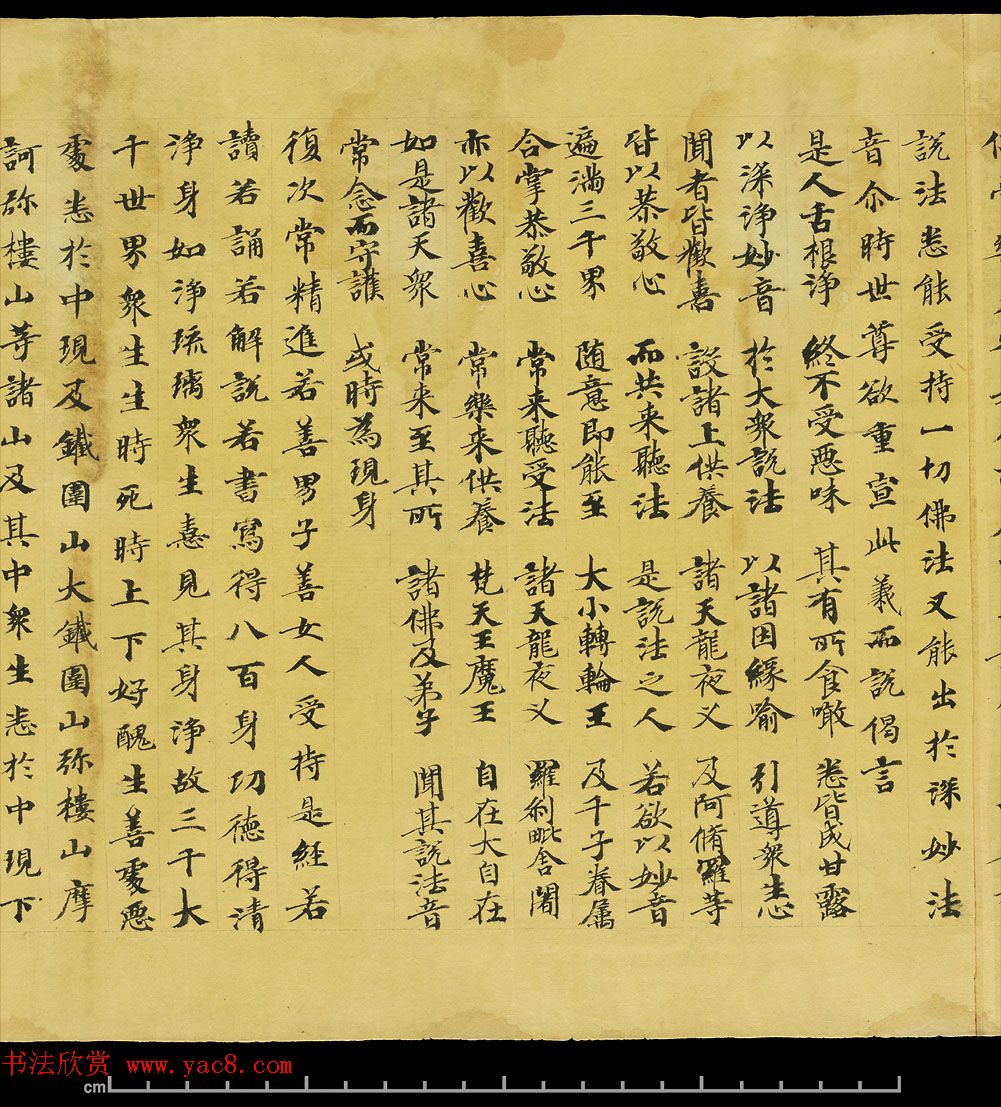 說法悉能受持一切佛法又能出於深妙法
音尒時世尊欲重宣此義而說偈言
是人舌根淨 終不受惡味 其有所食噉 悉皆成甘露
以深淨妙音 於大衆說法 以諸因緣喻 引導衆生心
聞者皆歡喜 設諸上供養 諸天龍夜叉 及阿脩羅等
皆以恭敬心 而共来聽法 是說法之人 若欲以妙音
遍滿三千界 随意即能至 大小轉輪王 及千子眷属
合掌恭敬心 常来聽受法 諸天龍夜叉 羅刹毗舍闍
亦以歡喜心 常樂来供養 梵天王魔王 自在大自在
如是諸天衆 常来至其所 諸佛及弟子 聞其說法音
常念而守護 或時為現身
復次常精進若善男子善女人受持是経若
讀若誦若解說若書寫得八百身功德得清
淨身如淨琉璃衆生憙見其身淨故三千大
千世界衆生生時死時上下好醜生善處惡
處悉於中現及鐵圍山大鐵圍山弥樓山摩
訶弥樓山等諸山及其中衆生悉於中現下
书法欣赏 www.yac8.com
cm